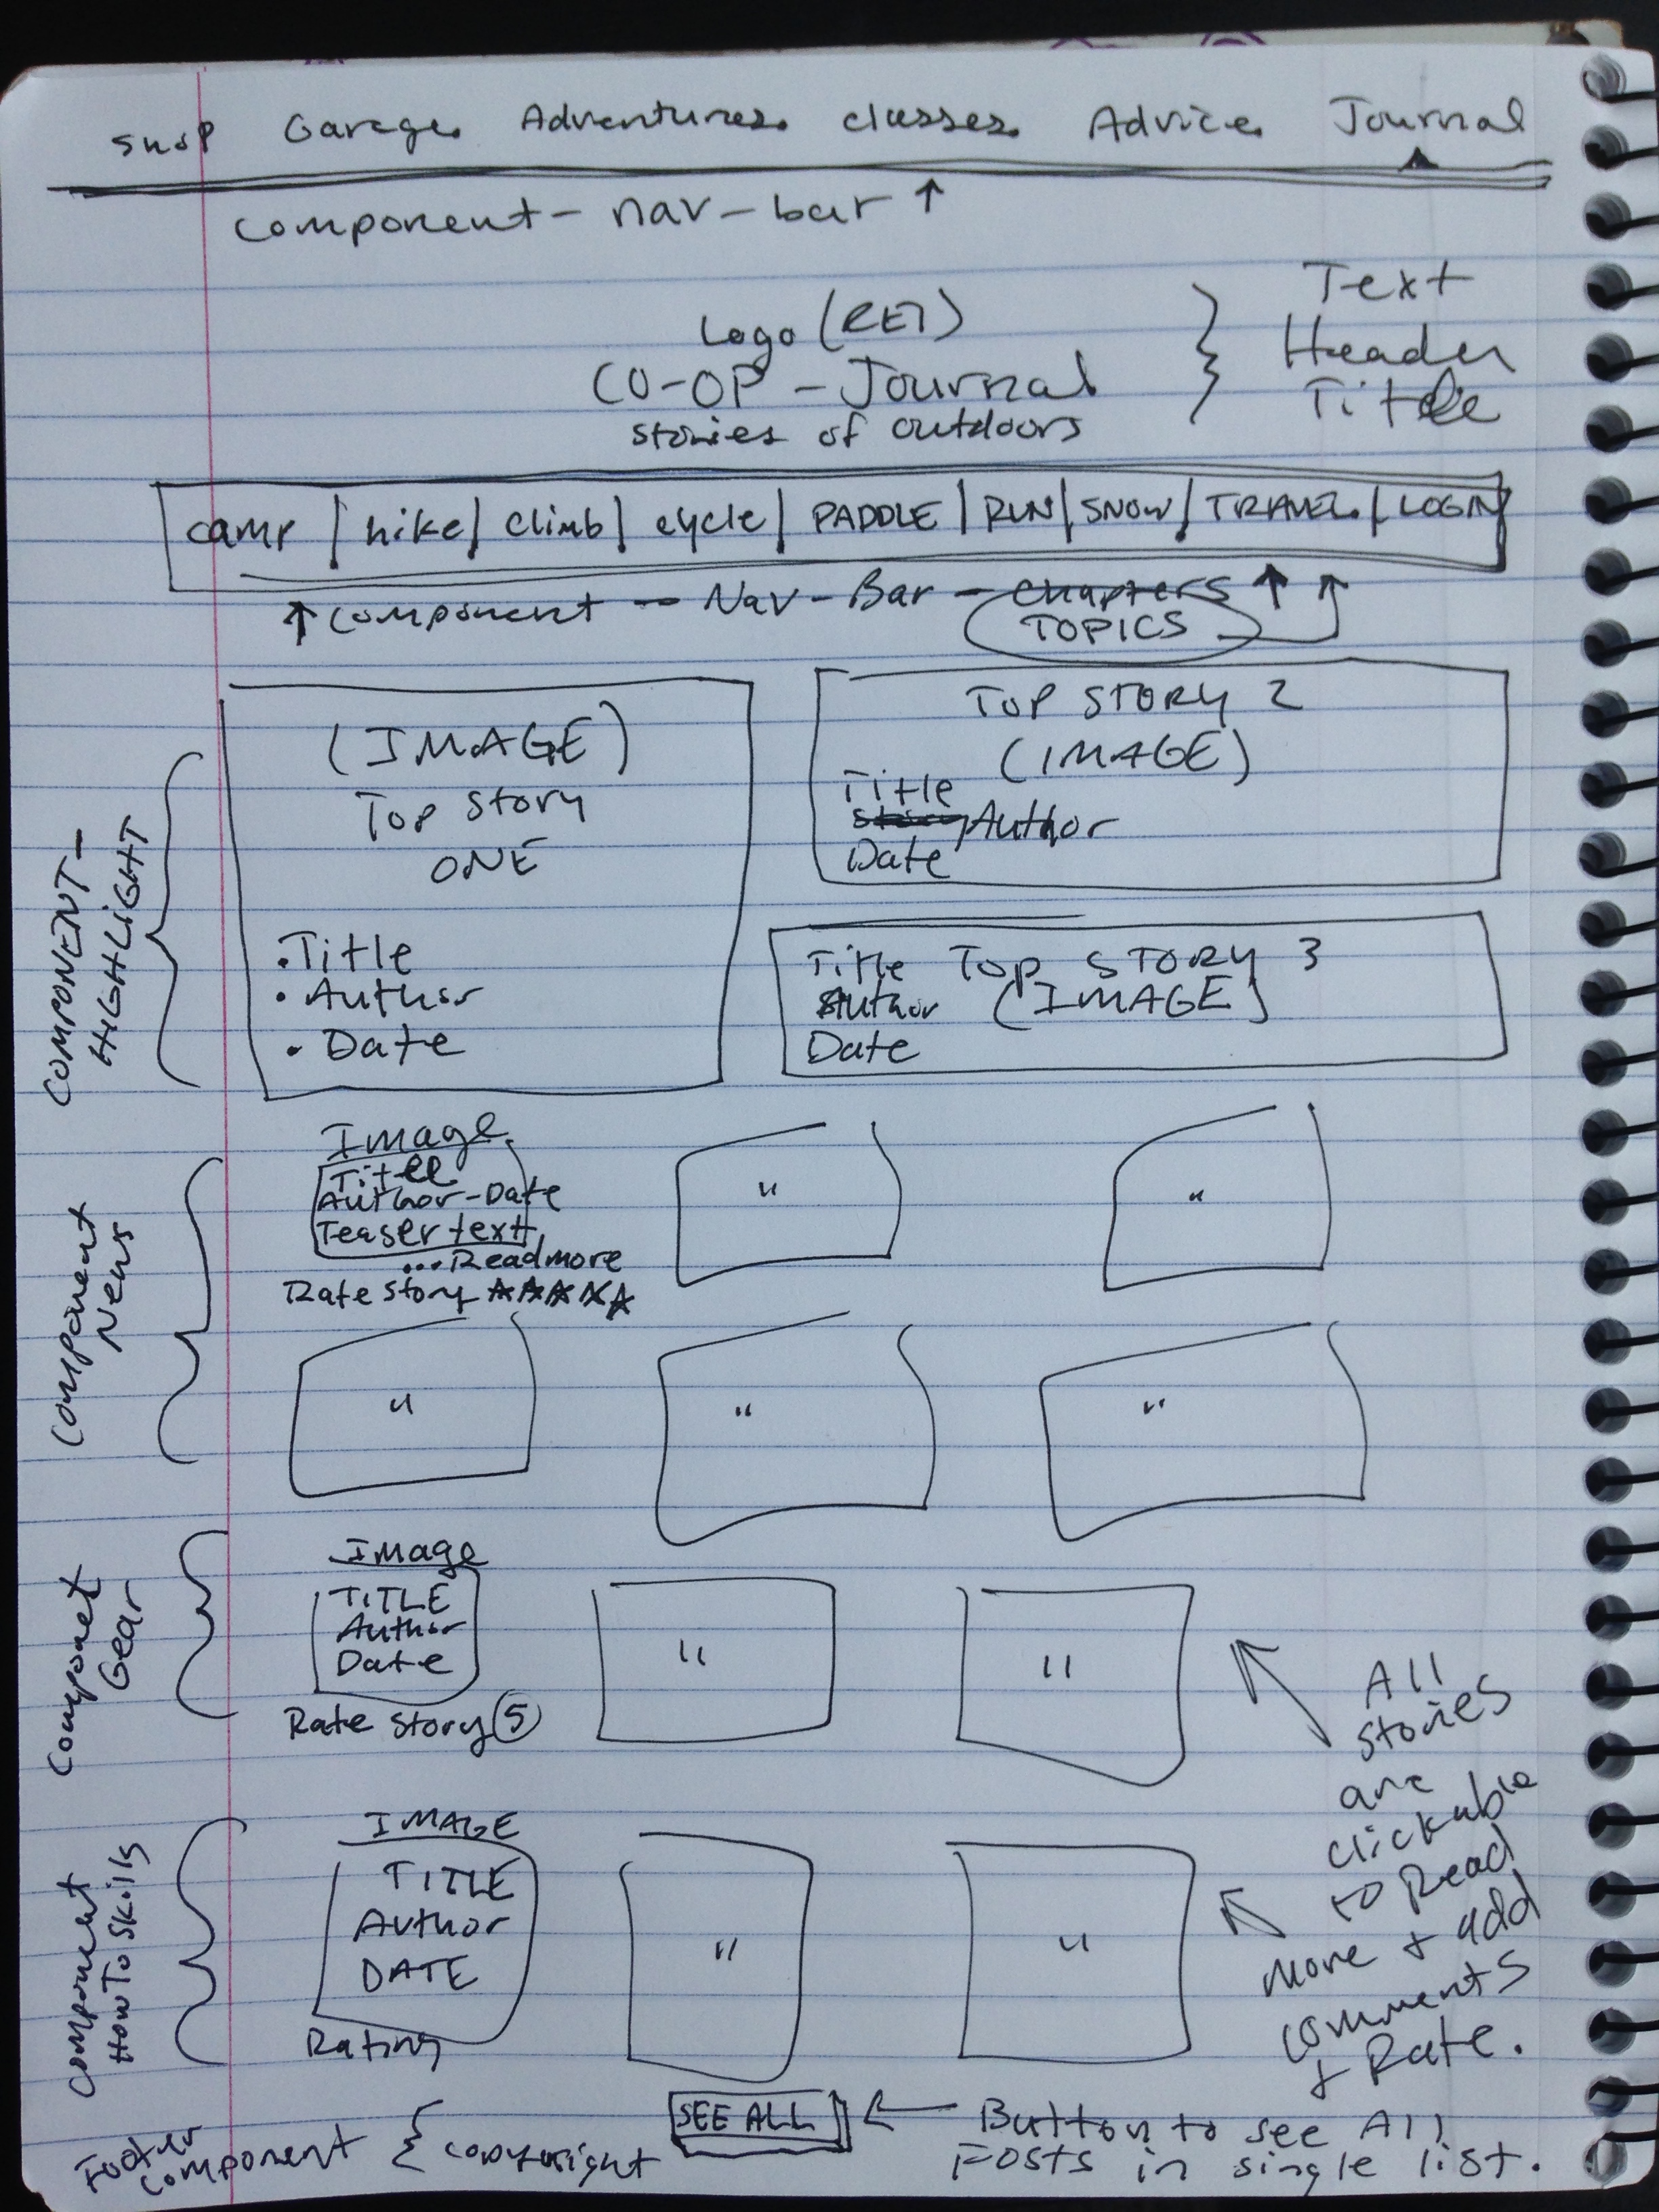 Shop Garage. Adventures. classes. Advice. Journal
component - nav - bar ↑
Logo (REI)
CO-OP - Journal
stories of outdoors
Text
Header
Title
camp | hike | climb | cycle | PADDLE | RUN | SNOW | TRAVEL. | LOGIN
↑ component - Nav - Bar - chapters ↑
TOPICS
COMPONENT -
HIGHLIGHT
(IMAGE)
Top Story
ONE
• Title
• Author
• Date
TOP STORY 2
(IMAGE)
Title
Author
Date
Title Top STORY 3
Author (IMAGE)
Date
Component
News
Image
Title
Author-Date
Teaser text
...Readmore
Rate story ☆☆☆☆☆
"
"
"
"
"
Componet
Gear
Image
TITLE
Author
Date
Rate story 5
"
"
All
stories
are
clickable
to Read
more + add
comments
+ Rate.
component
How To Skills
IMAGE
TITLE
Author
DATE
Rating
"
"
SEE ALL ← Button to see All
Posts in single list.
Footer
component { copyright